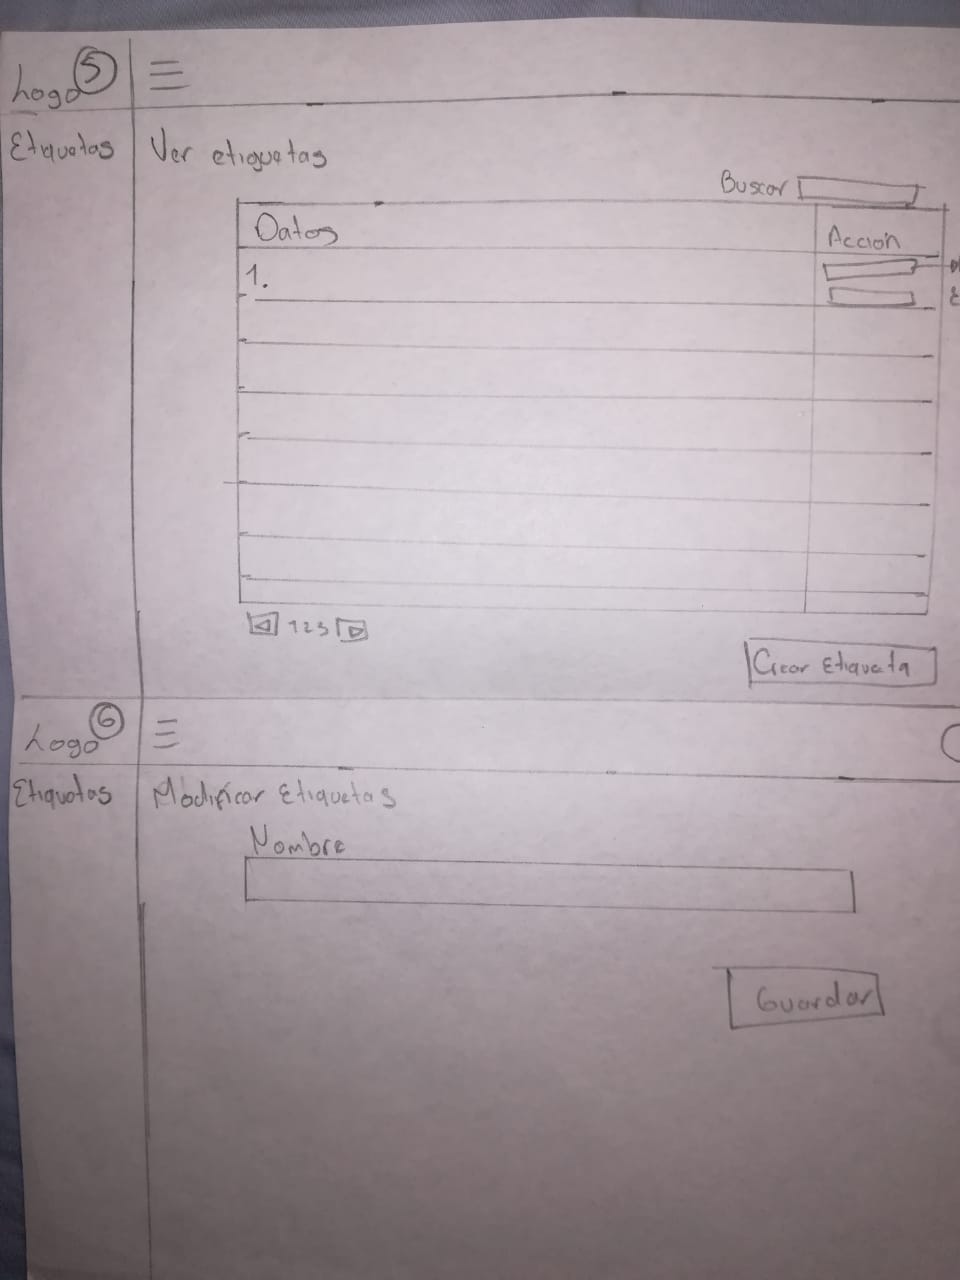 Logo 5
Etiquetas
Ver etiquetas
Buscar
Datos
Acción
1.
1 2 3
Crear Etiqueta
Logo 6
Etiquetas
Modificar Etiquetas
Nombre
Guardar